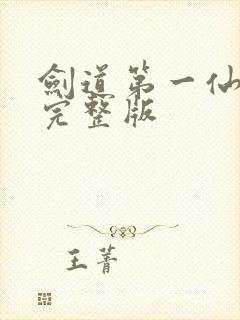 剑道第一仙
完整版
王菁